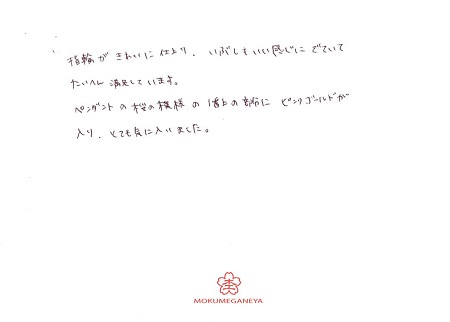 指輪がきれいに仕上り、いぶしもいい感じにでていて
たいへん満足しています。
ペンダントの桜の模様の1番上の部分にピンクゴールドが
入り、とても気に入りました。
MOKUMEGANEYA